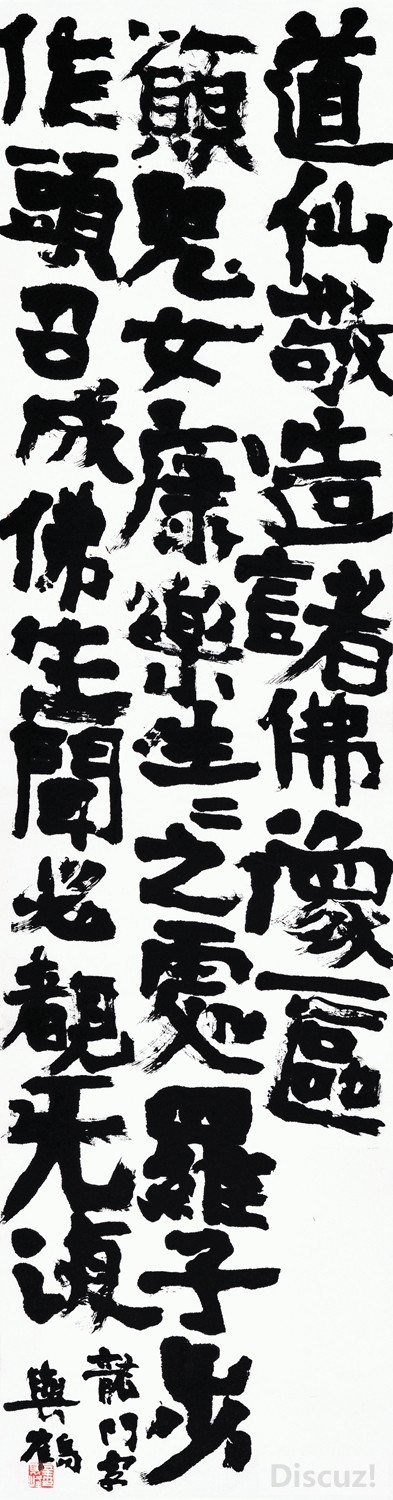 道仙敬造諸佛像一區
願兒女康樂生〻之處羅子步
作頭召成佛生聞必覩无湞
龍門字
興鶴
Discuz!